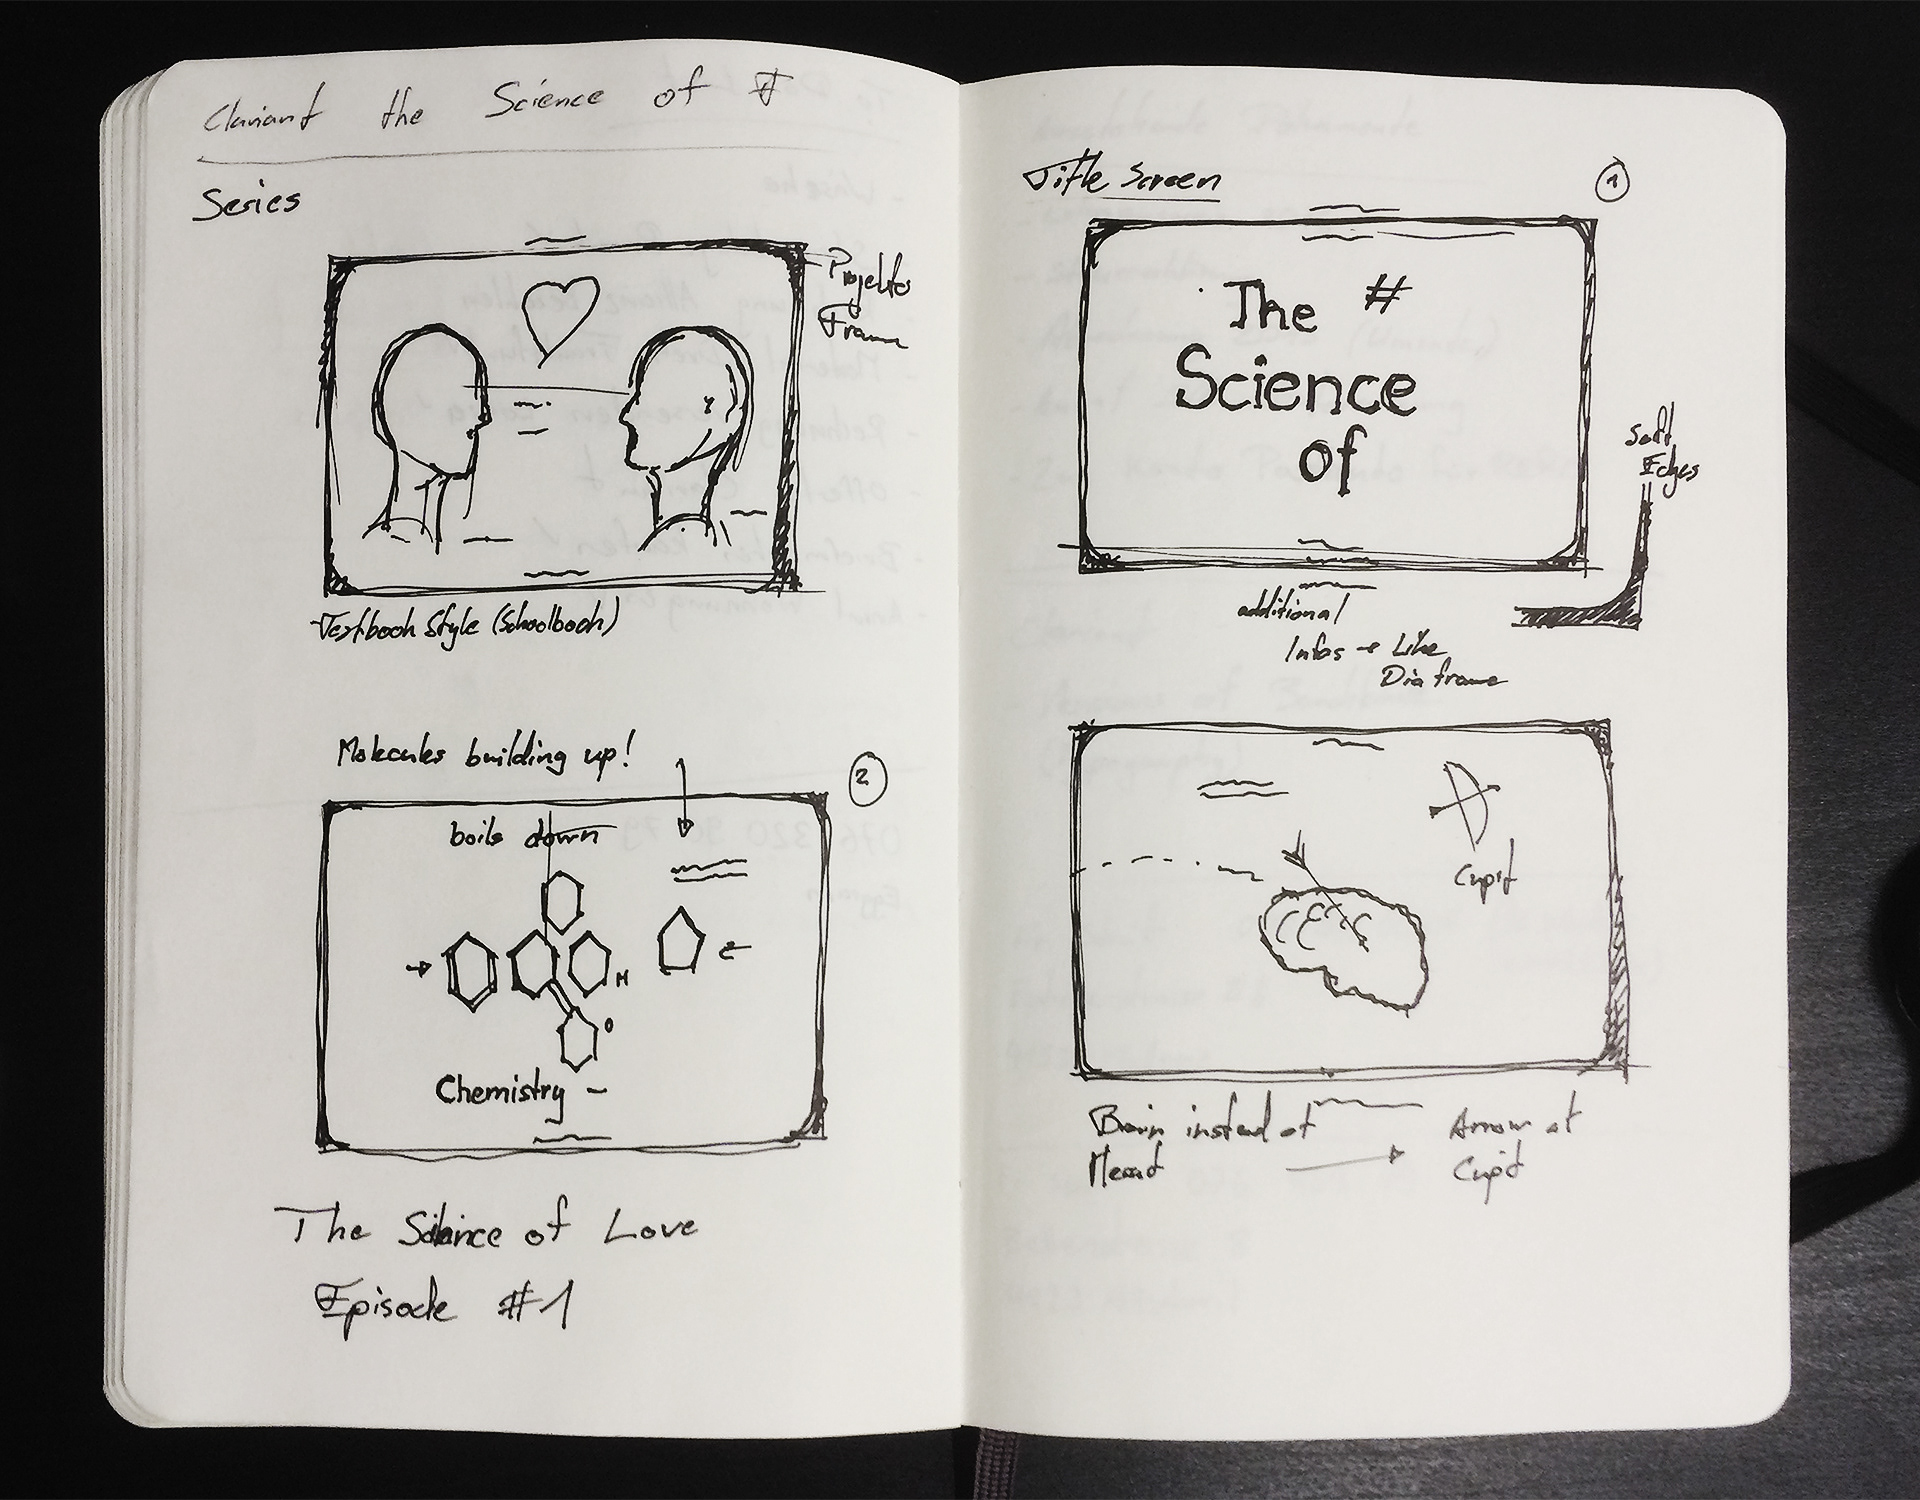 Clariant the Science of #
Series
Projektor
Frame
Textbook Style (Schoolbook)
Molecules building up!
2
boils down
H
O
Chemistry -
The Science of Love
Episode #1
Title Screen
1
The #
Science
of
Soft
Edges
additional
Infos → Like
Dia frame
Cupid
Brain instead of
Heart
Arrow of
Cupid